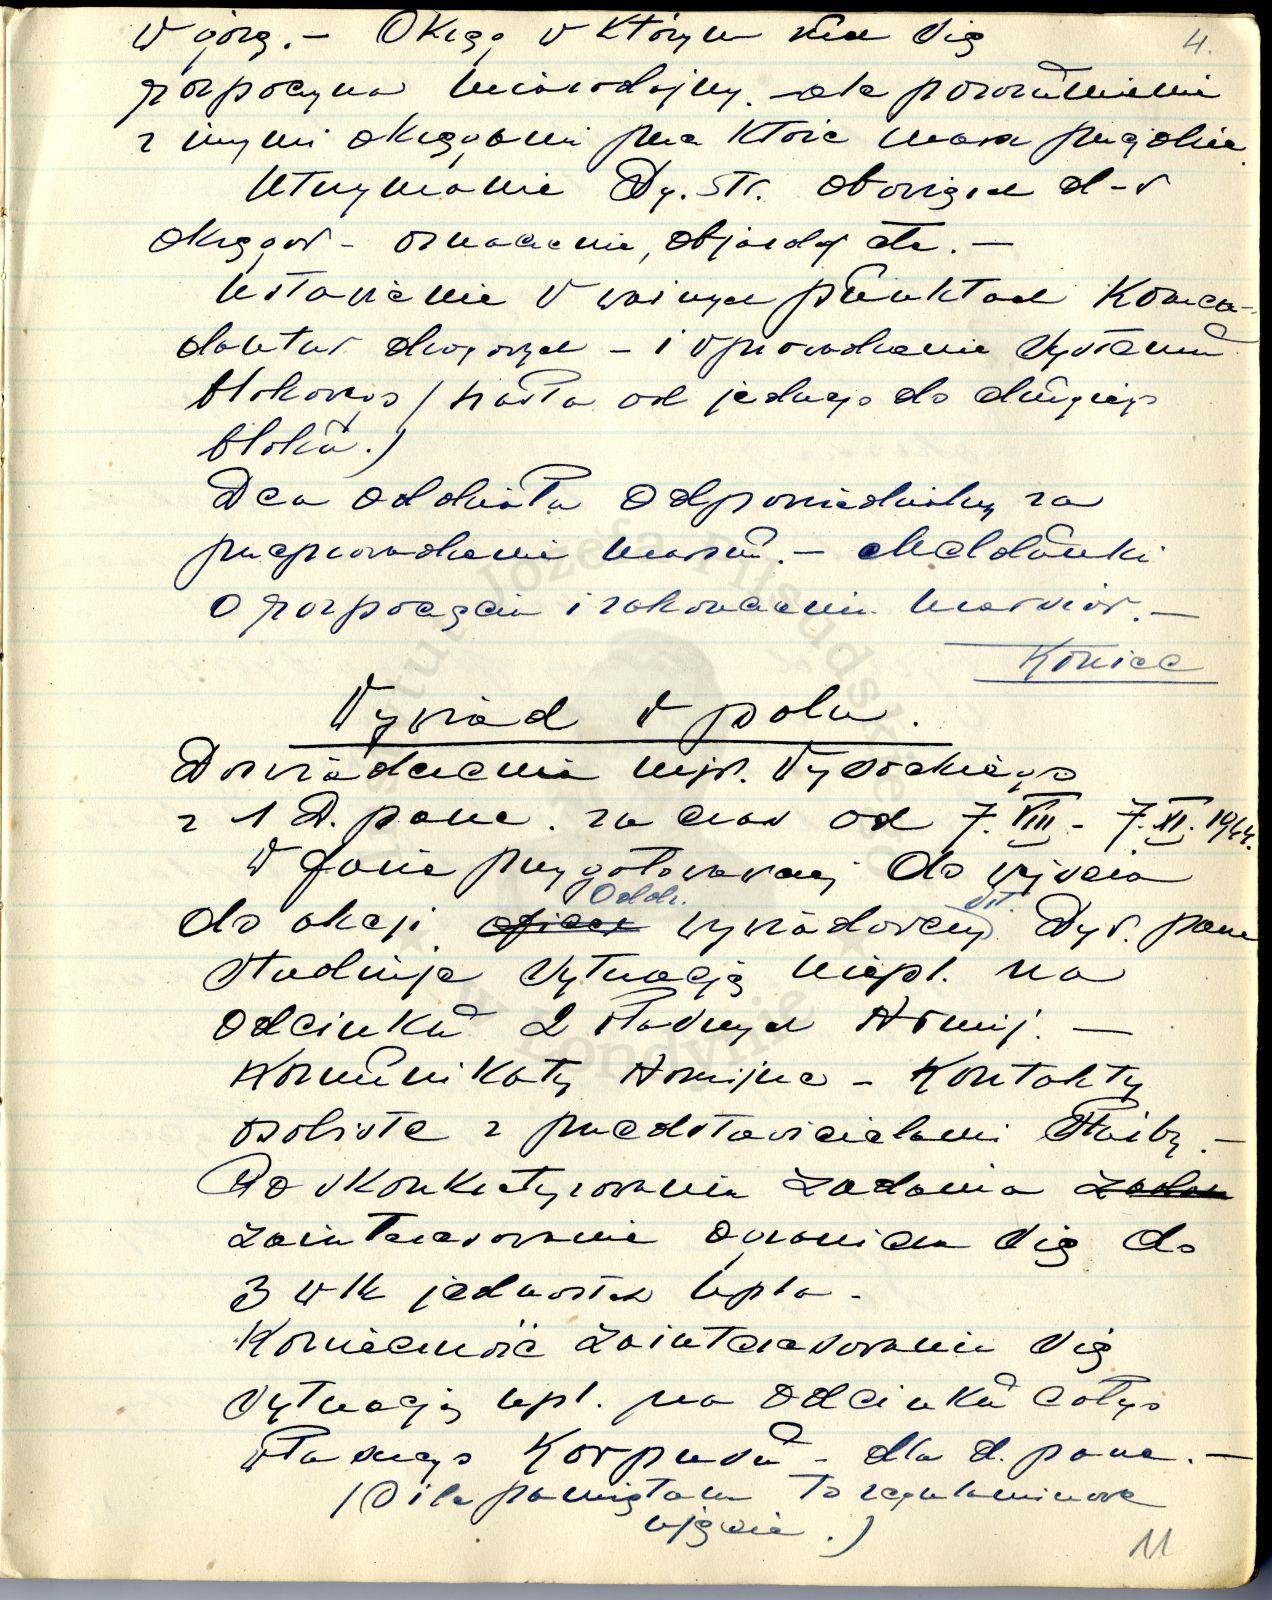 4.
w górę. – Okręg w którym ruch się
rozpoczyna miarodajny. – ale porozumienie
z innymi okręgami przez które masz przejście.
Utrzymanie Dy. str. obowiązek d-w
okręgów – oznaczenie, objazdy etc. –
Ustawienie w ważnych punktach Komen-
dantur drogowych – i wprowadzenie systemu
blokowego / hasła od jednego do drugiego
bloku.)
Dca oddziału odpowiedzialny za
przeprowadzenie marszu. – Meldunki
o rozpoczęciu i zakończeniu marszów. –
Koniec
Wywiad w polu.
Doświadczenia mjr. Wysockiego
z 1 D. panc. za czas od 7. VIII – 7. XI. 1944.
W fazie przygotowawczej do wyjścia
Oddz. szt.
do akcji oficer wywiadowczy Dyw. panc
studiuje sytuację niepl. na
odcinku 2 własnych Armij. –
Komunikaty Armijne – Kontakty
osobiste z przedstawicielami Służby. –
Po skonkretyzowaniu zadania zadan
zainteresowanie ogranicza się do
3 wlk jednostek npla –
Konieczność zainteresowania się
sytuacją npl. na odcinku całego
własnego Korpusu – dla d. panc. –
(O ile pamiętam to regulaminowe
ujęcie.)
11